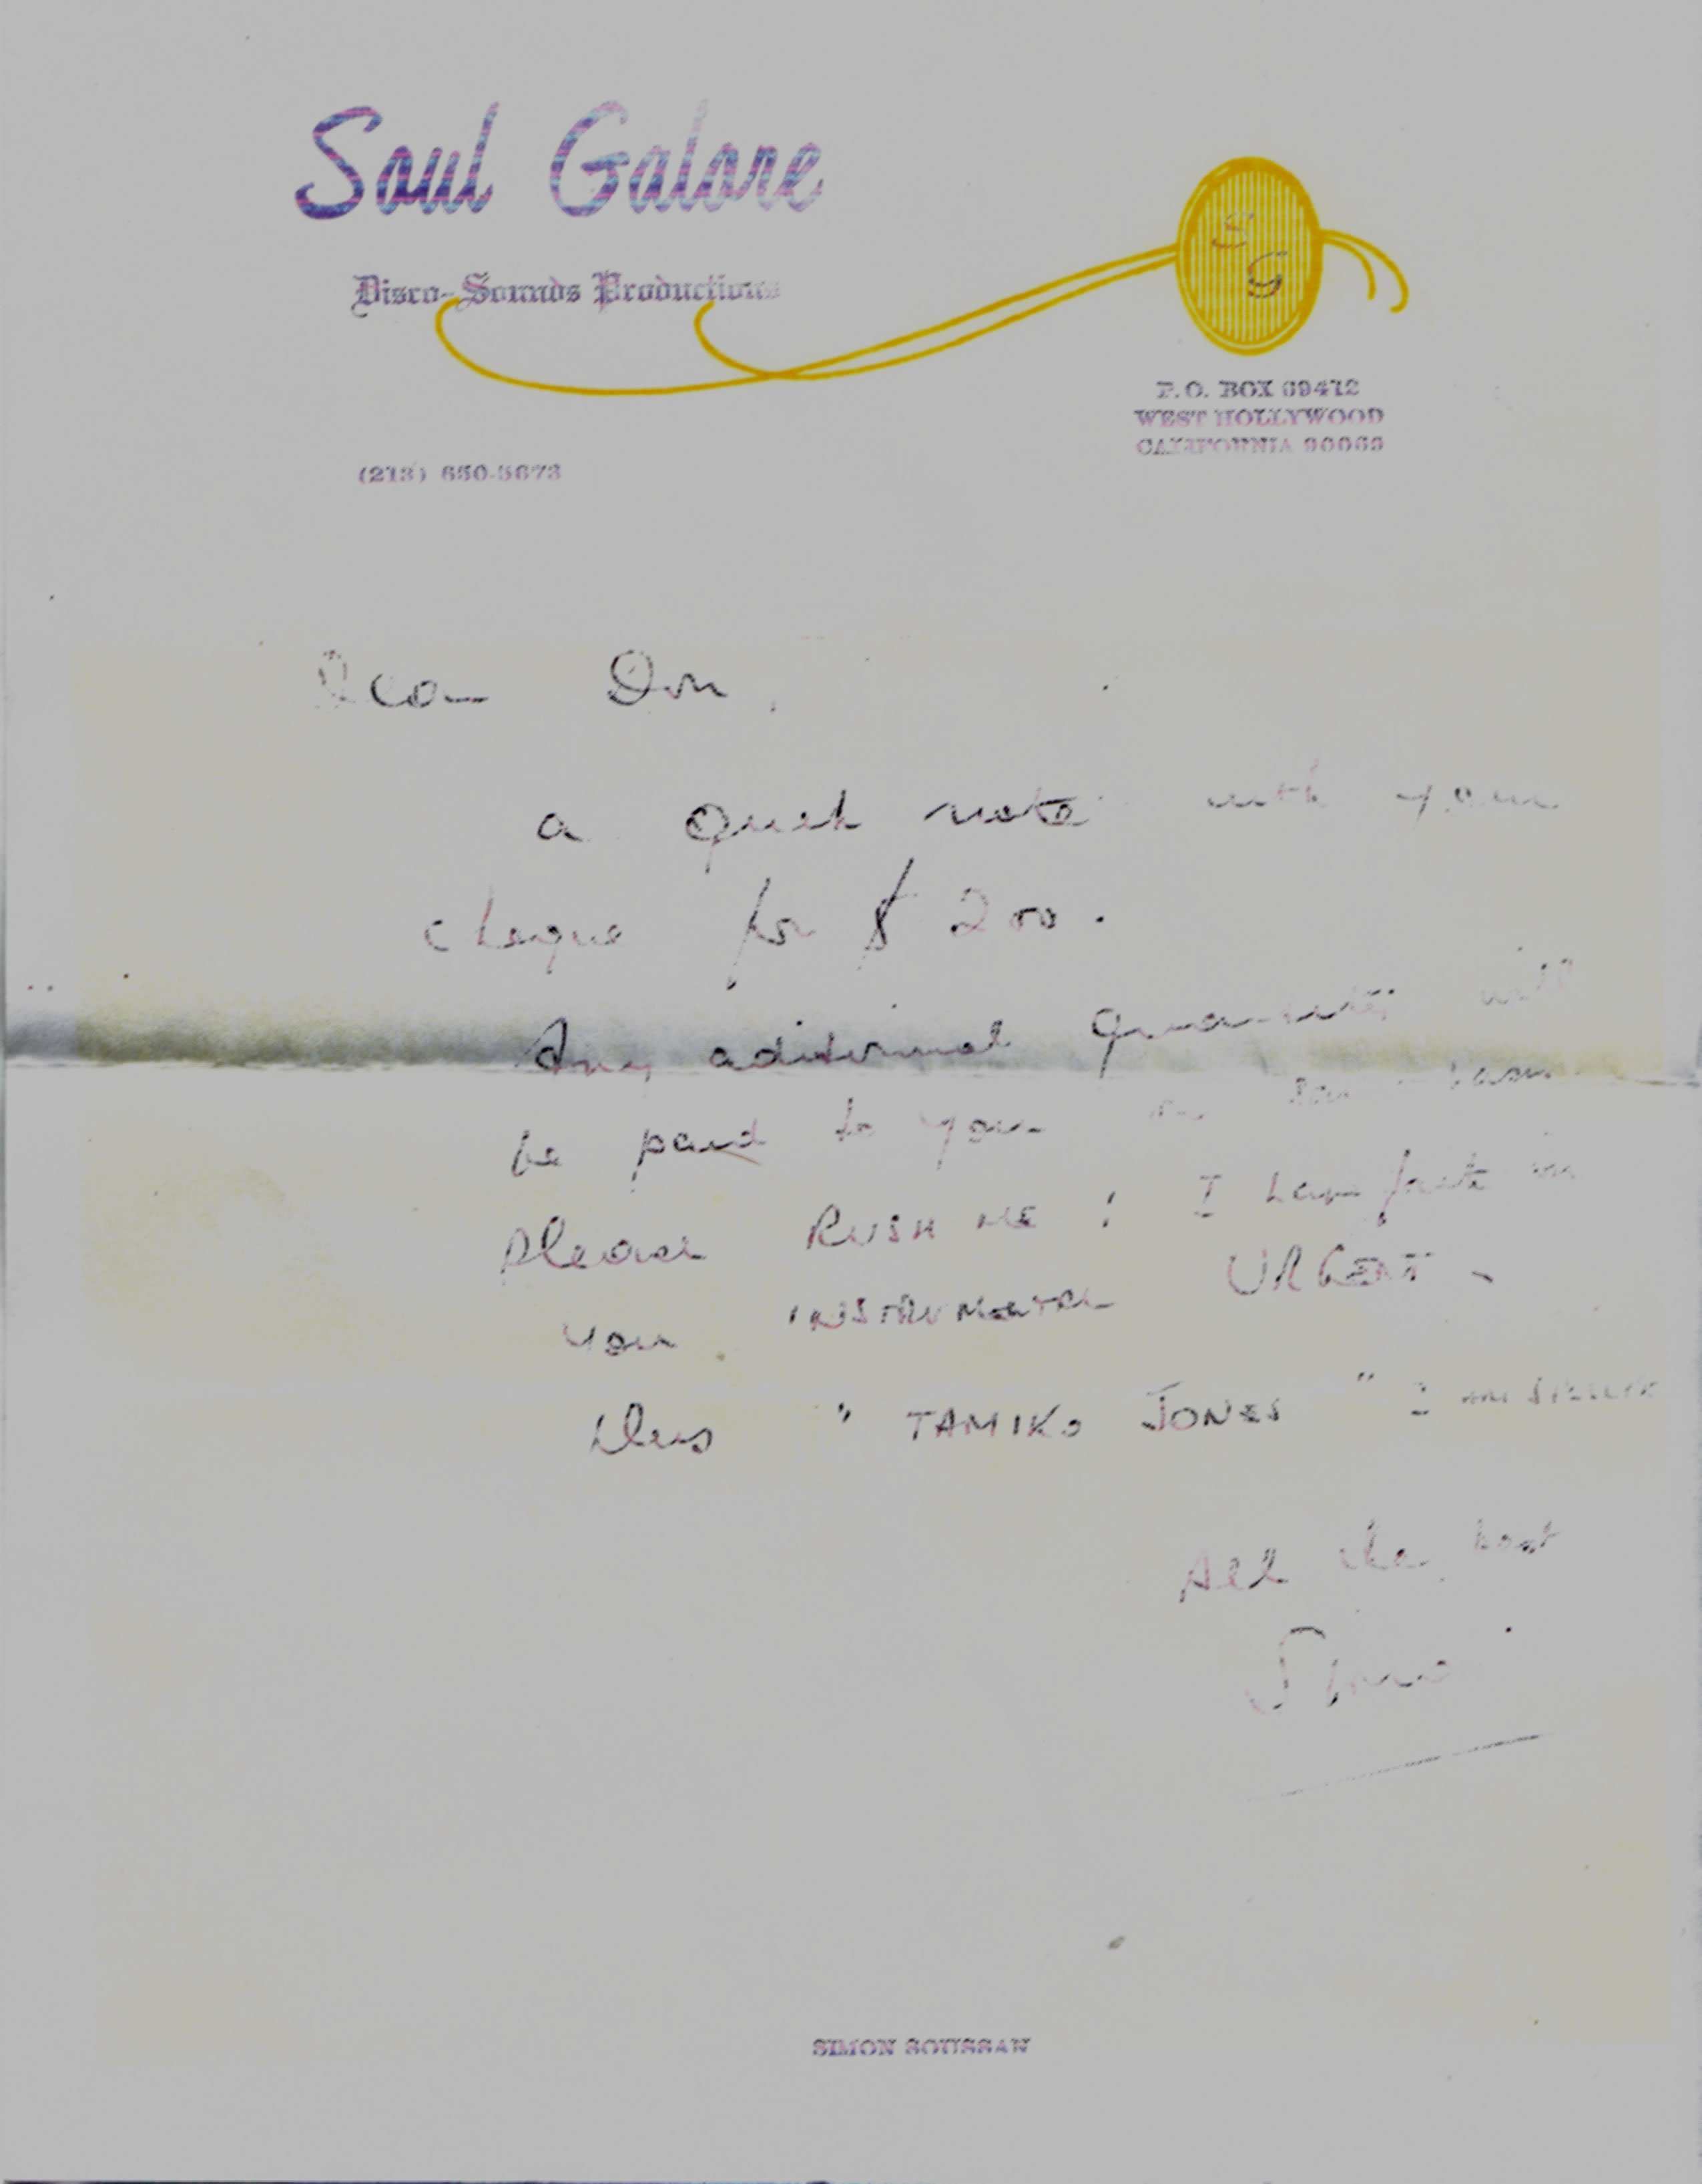 Soul Galore
Disco-Sounds Productions
S
G
P.O. BOX 69412
WEST HOLLYWOOD
CALIFORNIA 90069
(213) 650-5673
Dear Don,
a quick note with your
cheque for $ 200.
Any aditional quantity will
be paid to you
please RUSH ME ! I have
your INSTRUMENTAL URGENT -
this " TAMIKO JONES " I am
All the best
Simon
SIMON SOUSSAN